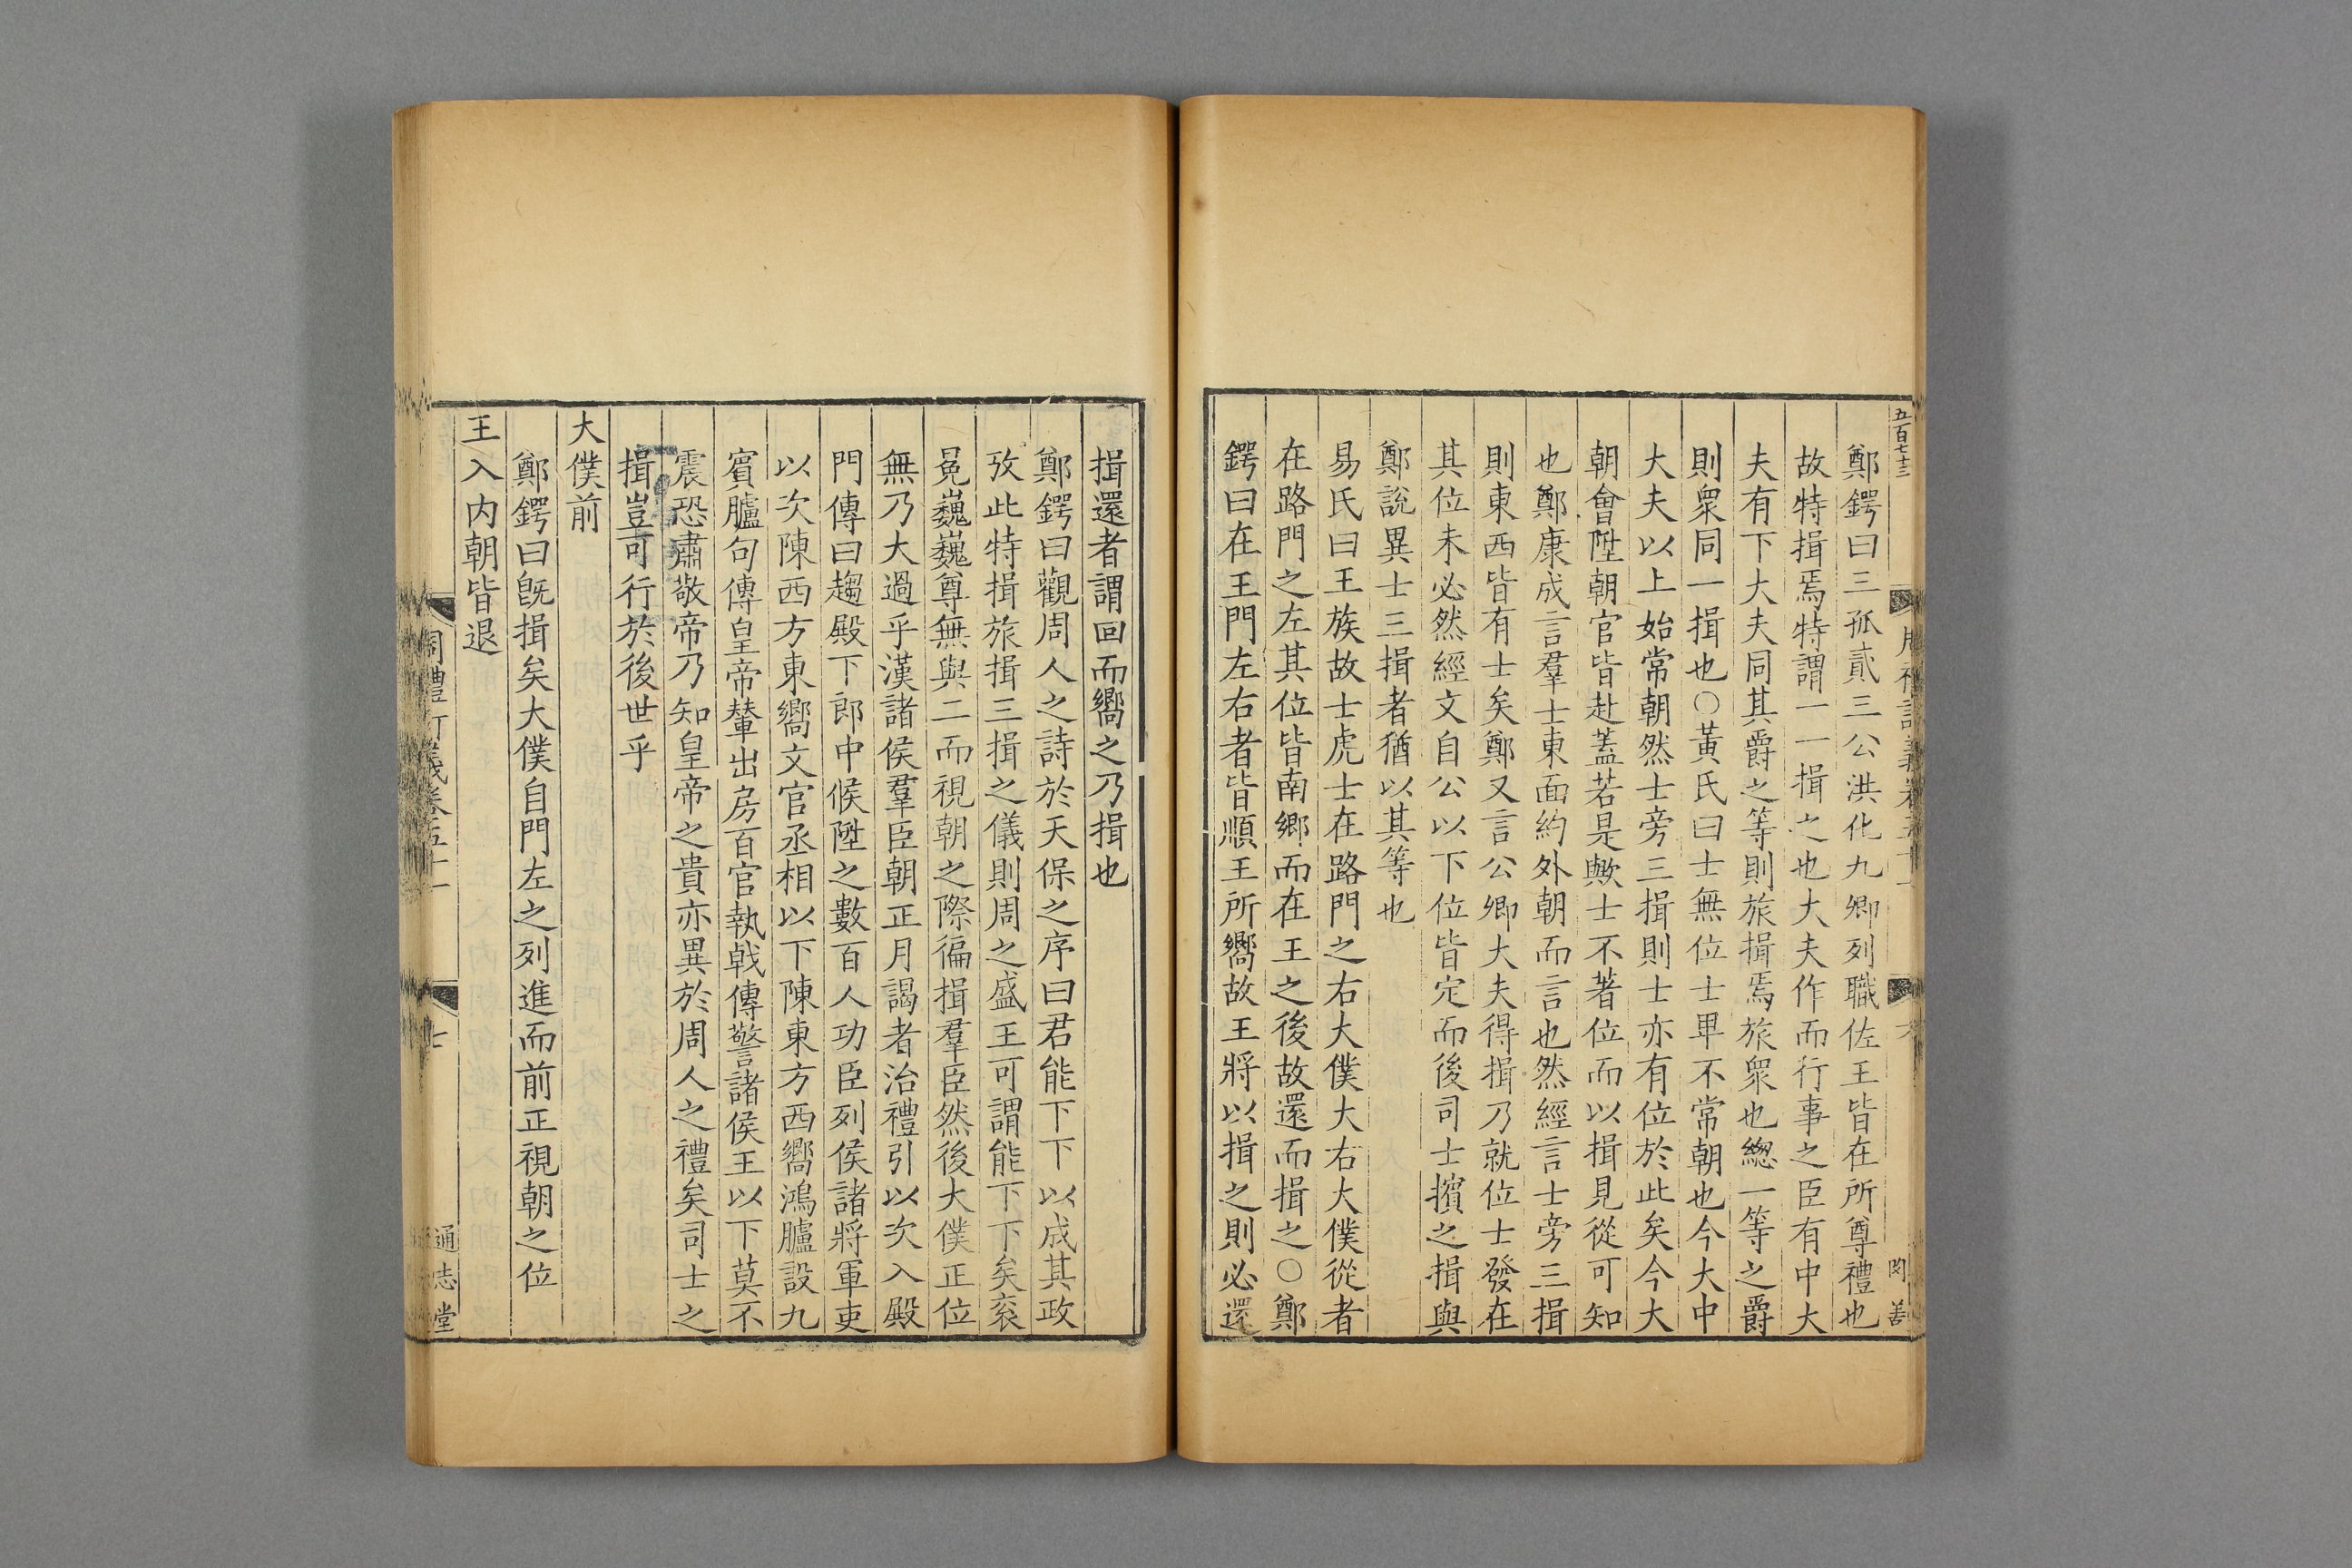 五百七十三
鄭鍔曰三孤貳三公洪化九卿列職佐王皆在所尊禮也
故特揖焉特謂一一揖之也大夫作而行事之臣有中大
夫有下大夫同其爵之等則旅揖焉旅衆也緫一等之爵
則衆同一揖也○黃氏曰士無位士畢不常朝也今大中
大夫以上始常朝然士旁三揖則士亦有位於此矣今大
朝會陞朝官皆赴蓋若是歟士不著位而以揖見從可知
也鄭康成言羣士東面約外朝而言也然經言士旁三揖
則東西皆有士矣鄭又言公卿大夫得揖乃就位士發在
其位未必然經文自公以下位皆定而後司士擯之揖與
鄭說異士三揖者猶以其等也
易氏曰王族故士虎士在路門之右大僕大右大僕從者
在路門之左其位皆南鄉而在王之後故還而揖之○鄭
鍔曰在王門左右者皆順王所嚮故王將以揖之則必還
揖還者謂回而嚮之乃揖也
鄭鍔曰觀周人之詩於天保之序曰君能下下以成其政
攷此特揖旅揖三揖之儀則周之盛王可謂能下下矣衮
冕巍巍尊無與二而視朝之際徧揖羣臣然後大僕正位
無乃大過乎漢諸侯羣臣朝正月謁者治禮引以次入殿
門傳曰趨殿下郎中候陞之數百人功臣列侯諸將軍吏
以次陳西方東嚮文官丞相以下陳東方西嚮鴻臚設九
賓臚句傳皇帝輦出房百官執戟傳警諸侯王以下莫不
震恐肅敬帝乃知皇帝之貴亦異於周人之禮矣司士之
揖豈可行於後世乎
大僕前
鄭鍔曰旣揖矣大僕自門左之列進而前正視朝之位
王入内朝皆退
通志堂